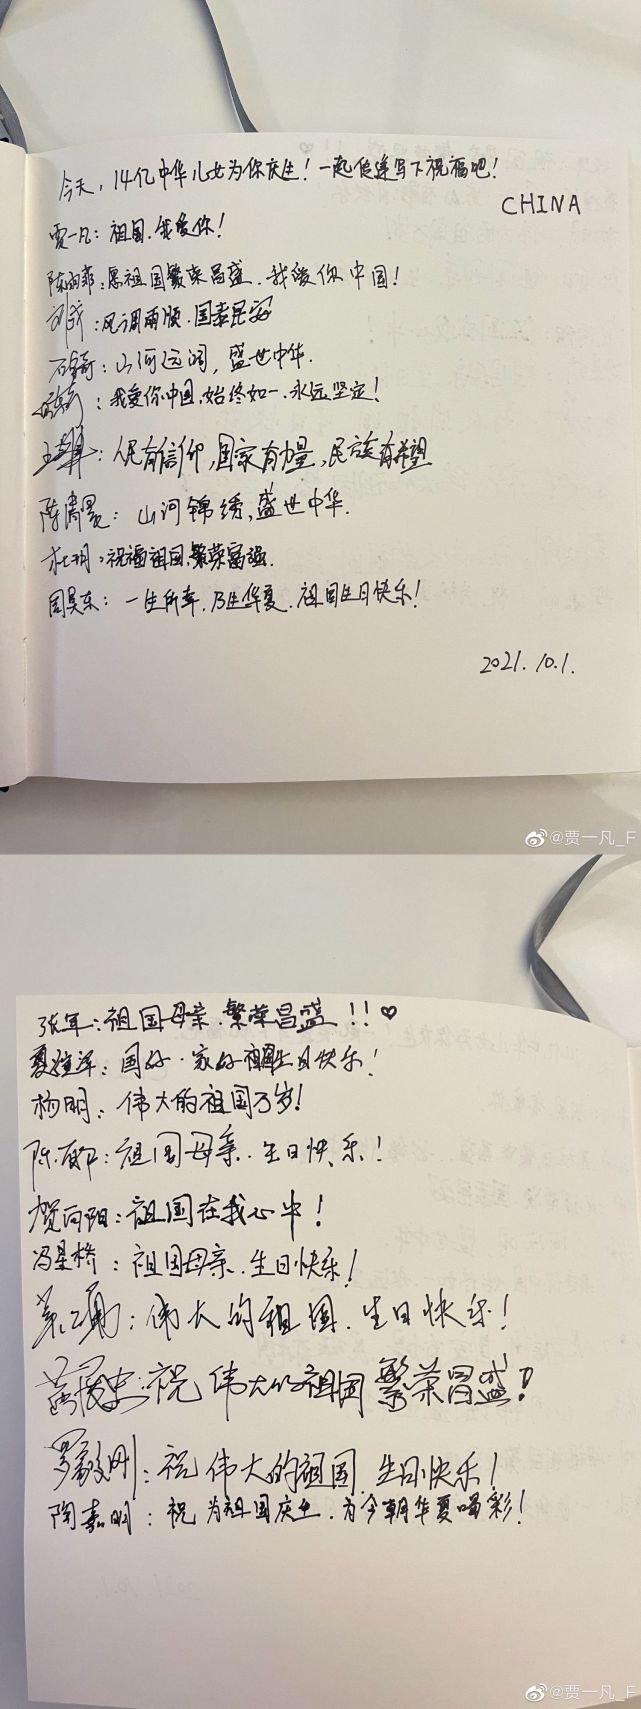 今天，14亿中华儿女为你庆生！一起传递写下祝福吧！
CHINA
贾一凡：祖国.我爱你！
陈雨菲：愿祖国繁荣昌盛.我爱你中国！
：风调雨顺.国泰民安
：山河远阔，盛世中华.
：我爱你中国,始终如一.永远坚定！
：人民有信仰,国家有力量,民族有希望
陈清晨：山河锦绣,盛世中华.
杜玥：祝福祖国,繁荣富强.
周昊东：一生所幸.乃生华夏.祖国生日快乐！
2021.10.1.
@贾一凡_F
张军：祖国母亲.繁荣昌盛!!!♡
夏煊泽：国好.家好祖国生日快乐！
杨明：伟大的祖国万岁！
陈郁：祖国母亲.生日快乐！
贺向阳：祖国在我心中！
冯星桥：祖国母亲.生日快乐！
：伟大的祖国.生日快乐！
：祝伟大的祖国繁荣昌盛！
罗毅刚：祝伟大的祖国.生日快乐！
陶嘉明：祝为祖国庆生.为今朝华夏喝彩！
@贾一凡_F